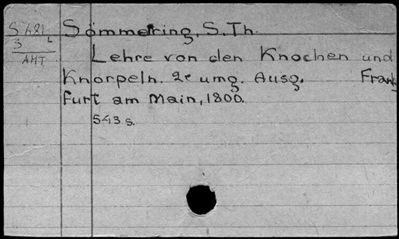 Sömmering, S. Th.
Lehre von den Knochen und
Knorpeln. 2e umg. Ausg. Frank
furt am Main, 1800.
543 s.
АНТ